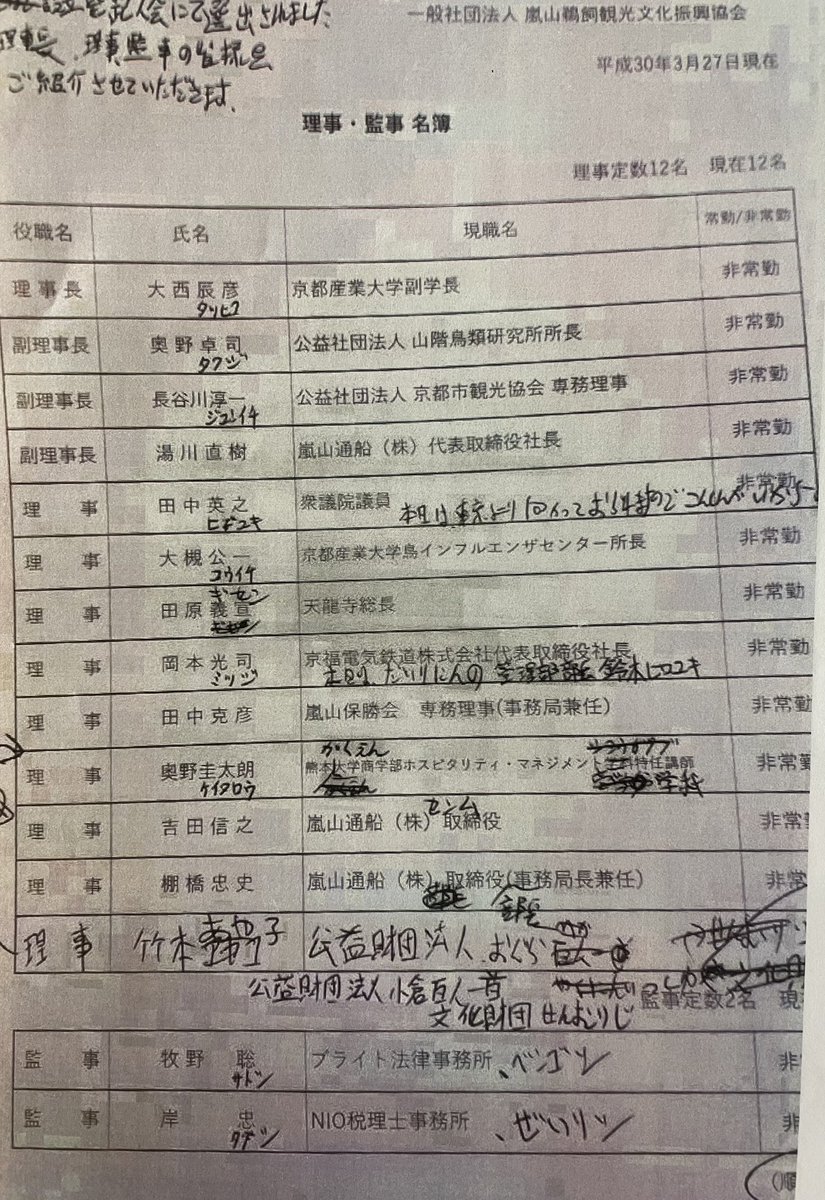 一般社団法人 嵐山鵜飼観光文化振興協会
にて選出されました
理事長、理事監事の皆様を
ご紹介させていただきます。
平成30年3月27日現在
理事・監事 名簿
理事定数12名 現在12名
役職名 氏名 現職名 常勤/非常勤
理事長 大西辰彦 京都産業大学副学長 非常勤
タツヒコ
副理事長 奥野卓司 公益社団法人 山階鳥類研究所所長 非常勤
タクジ
副理事長 長谷川淳一 公益社団法人 京都市観光協会 専務理事 非常勤
ジュンイチ
副理事長 湯川直樹 嵐山通船（株）代表取締役社長 非常勤
理事 田中英之 衆議院議員 非常勤
ヒデユキ 本日は東京より
理事 大槻公一 京都産業大学鳥インフルエンザセンター所長 非常勤
コウイチ
ギセン
理事 田原義宣 天龍寺総長 非常勤
理事 岡本光司 京福電気鉄道株式会社代表取締役社長 非常勤
ミツジ 本日 だいりにんの 管理部部長 鈴木ヒロユキ
理事 田中克彦 嵐山保勝会 専務理事(事務局兼任) 非常勤
がくえん
理事 奥野圭太朗 熊本大学商学部ホスピタリティ・マネジメント学科特任講師 非常勤
ケイタロウ 学科
センム
理事 吉田信之 嵐山通船（株）取締役 非常勤
理事 棚橋忠史 嵐山通船（株）取締役(事務局長兼任) 非常
理事 竹本 子 公益財団法人 おぐら百人一
公益財団法人小倉百人一首
文化財団 せんむりじ
監事定数2名 現
監事 牧野聡 ブライト法律事務所 、ベンゴシ 非
サトシ
監事 岸忠 NIO税理士事務所 、ぜいりシ 非
タダシ